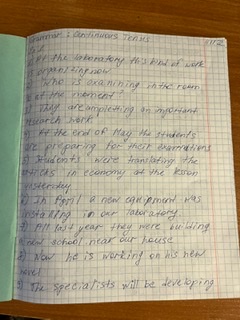 Grammar: Continuous Tenses
At the laboratory this kind of work
is organizing now
2) Who is examining in the room
at the moment?
They are completing an important
research work
4) At the end of May the students
are preparing for their examinations
5) Students were translating the
articles in economy at the lesson
yesterday
6) In April a new equipment was
installing in our laboratory
7) All last year they were building
a new school near our house
8) Now he is working on his new
novel
9) The specialists will be developing